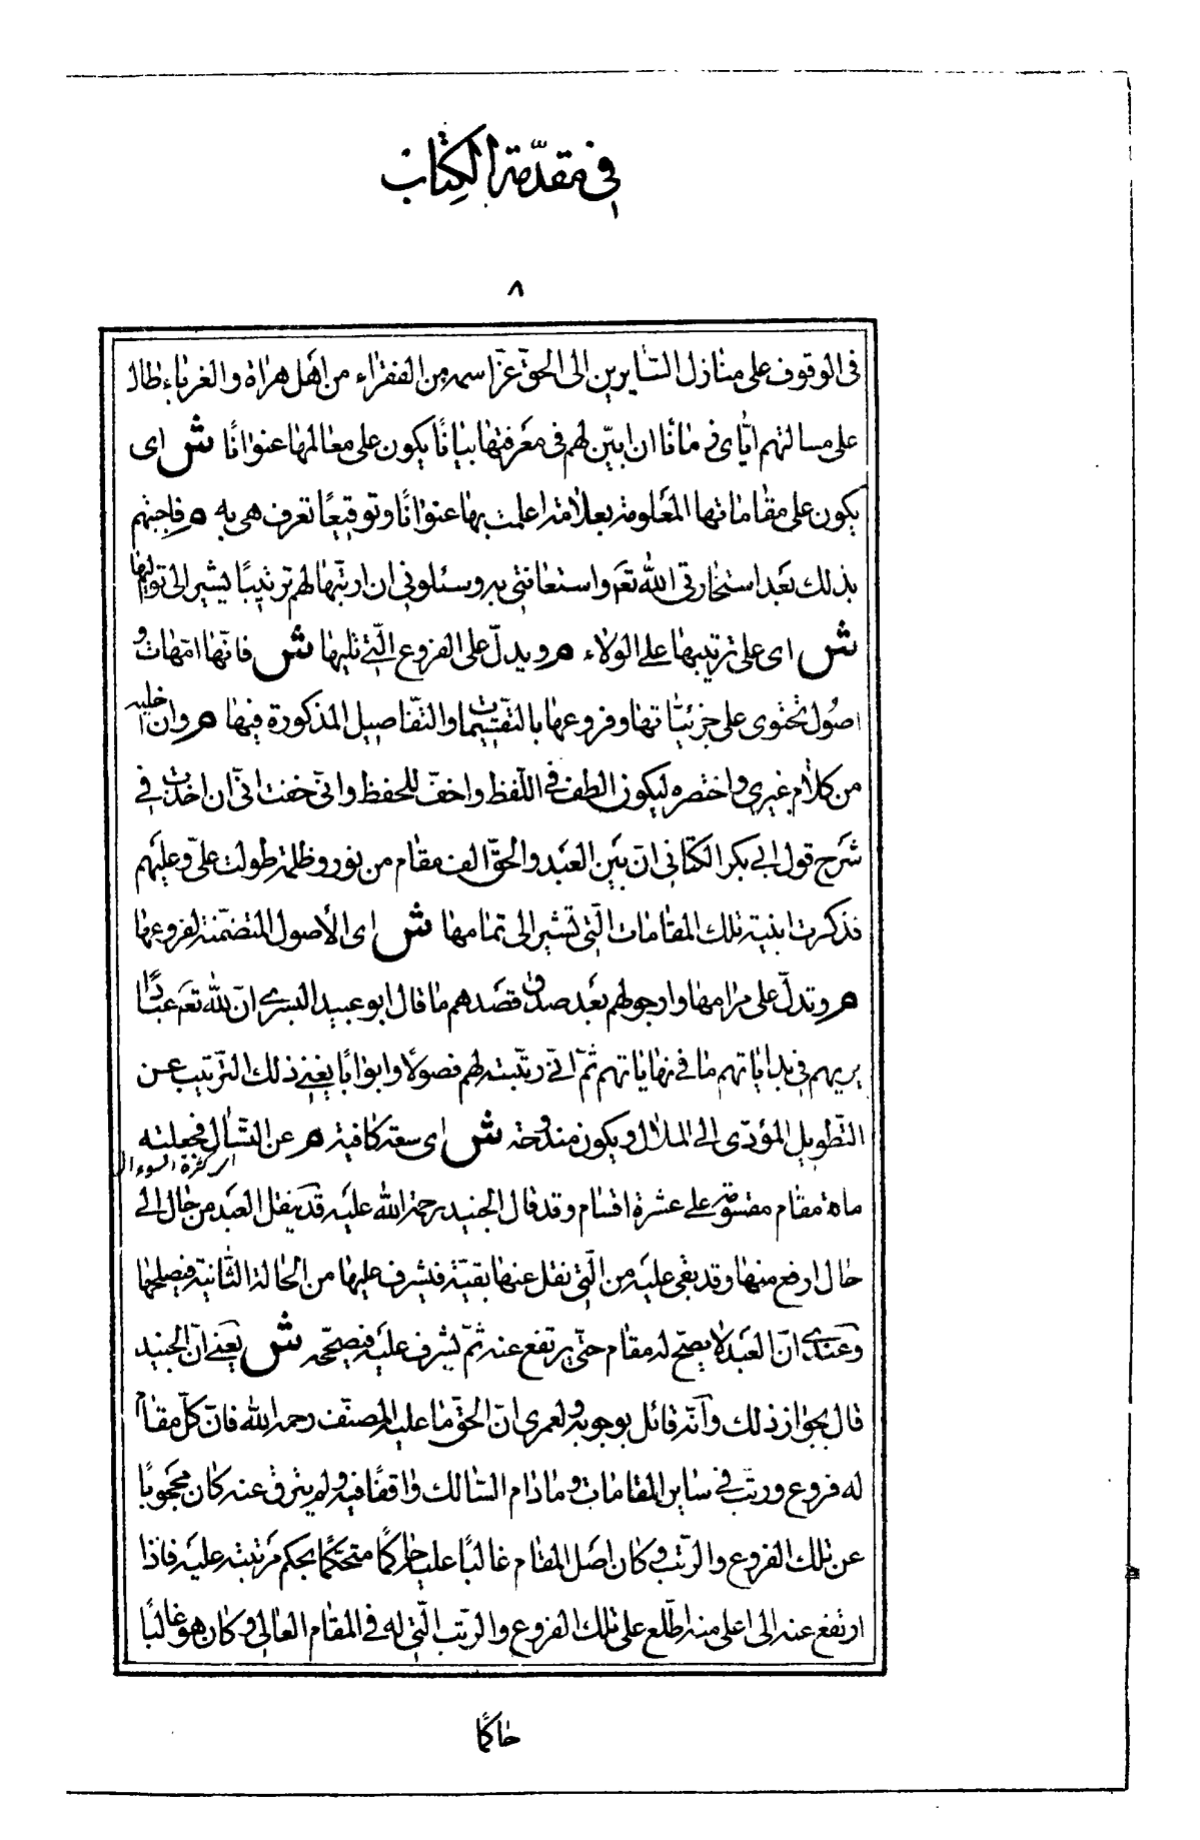 في مقدّمة الكتاب
٨
في الوقوف على منازل السّايرين الى الحقّ عزّ اسمه من الفقراء من اهل هراة والغرباء طال
على مسالتهم ايّاى زمانا ان ابيّن لهم في معرفتها بيانًا يكون على معالمها عنوانًا ش اى
يكون على مقاماتها المعلومة بعلامة اعلمت بها عنوانًا وتوقيعًا تعرف هى به م فاجبتهم
بذلك بعد استخارتى الله تعم واستعانتى به وسئلونى ان ارتّبها لهم ترتيبًا يشير الى تواليها
ش اى على ترتيبها على الولاء م ويدلّ على الفروع الّتى تليها ش فانّها امّهات و
اصول تحتوى على جزئيّاتها وفروعها بالتقسيمات والتّفاصيل المذكورة فيها م وان اخليه
من كلام غيرى واختصره ليكون الطف في اللّفظ واخفّ للحفظ وانّى خفت انّى ان اخذت في
شرح قول ابى بكر الكتّانى انّ بين العبد والحقّ الف مقام من نور وظلمة طولت علىّ وعليهم
فذكرت ابنية تلك المقامات الّتى تشير الى تمامها ش اى الأصول المتضمّنة لفروعها
م وتدلّ على مرامها وارجو لهم بعد صدق قصدهم ما قال ابو عبيد البسرى انّ لله تعم عبادًا
يريهم فى بداياتهم ما في نهاياتهم ثمّ انّى رتّبته لهم فصولًا وابوابًا يغنى ذلك التّرتيب عن
التّطويل المؤدّى الى الملال ويكون مندوحة ش اى سعة كافية م عن التسال فجعلته
اى كثرة السوءال
مائة مقام مقسومة على عشرة اقسام وقد قال الجنيد رحمة الله عليه قد ينقل العبد من حال الى
حال ارفع منها وقد بقى عليه من الّتى نقل عنها بقيّة فيشرف عليها من الحالة الثّانية فيصلحها
وعندى انّ العبد لا يصحّ له مقام حتّى يرتفع عنه ثمّ يشرف عليه فيصحّحه ش يعنى انّ الجنيد
قال بجواز ذلك وانّه قائل بوجوبه ولعمرى انّ الحقّ ما عليه المصنّف رحمه الله فانّ كلّ مقام
له فروع ورتب في ساير المقامات وما دام السّالك واقفًا فيه ولم يترقّ عنه كان محجوبًا
عن تلك الفروع والرّتب وكان اصل المقام غالبًا عليه حاكمًا متحكّمًا بحكم مرتبته عليه فاذا
ارتفع عنه الى اعلى منه اطّلع على تلك الفروع والرّتب الّتى له في المقام العالى وكان هو غالبًا
حاكمًا